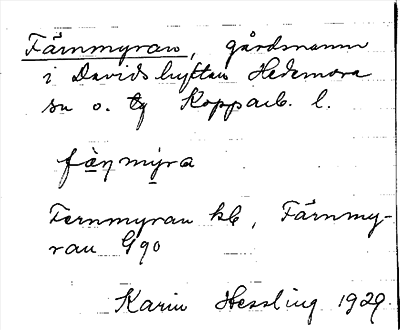 Färnmyran, gårdsnamn
i Davidshyttan Hedemora
sn o. tg Kopparb. l.
fä̀ṇmýra
Fernmyran kb, Färnmy-
ran G90
Karin Hessling 1929